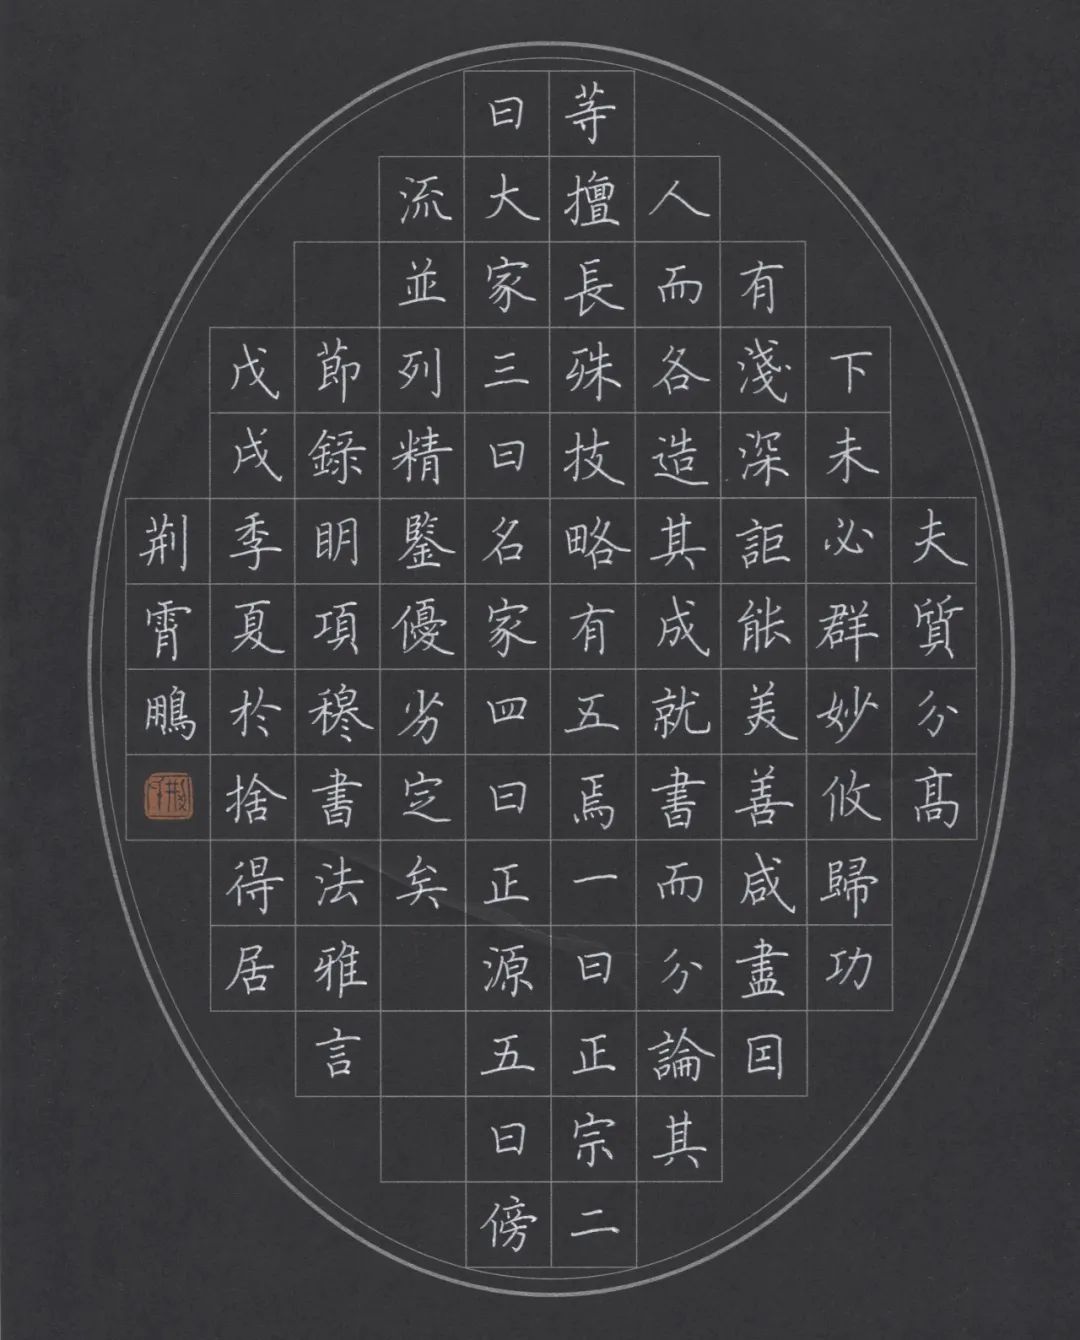 夫質分高
下未必群妙攸歸功
有淺深詎能美善咸盡因
人而各造其成就書而分論其
等擅長殊技略有五焉一曰正宗二
曰大家三曰名家四曰正源五曰傍
流並列精鑒優劣定矣
節錄明項穆書法雅言
戊戌季夏於捨得居
荆霄鵬